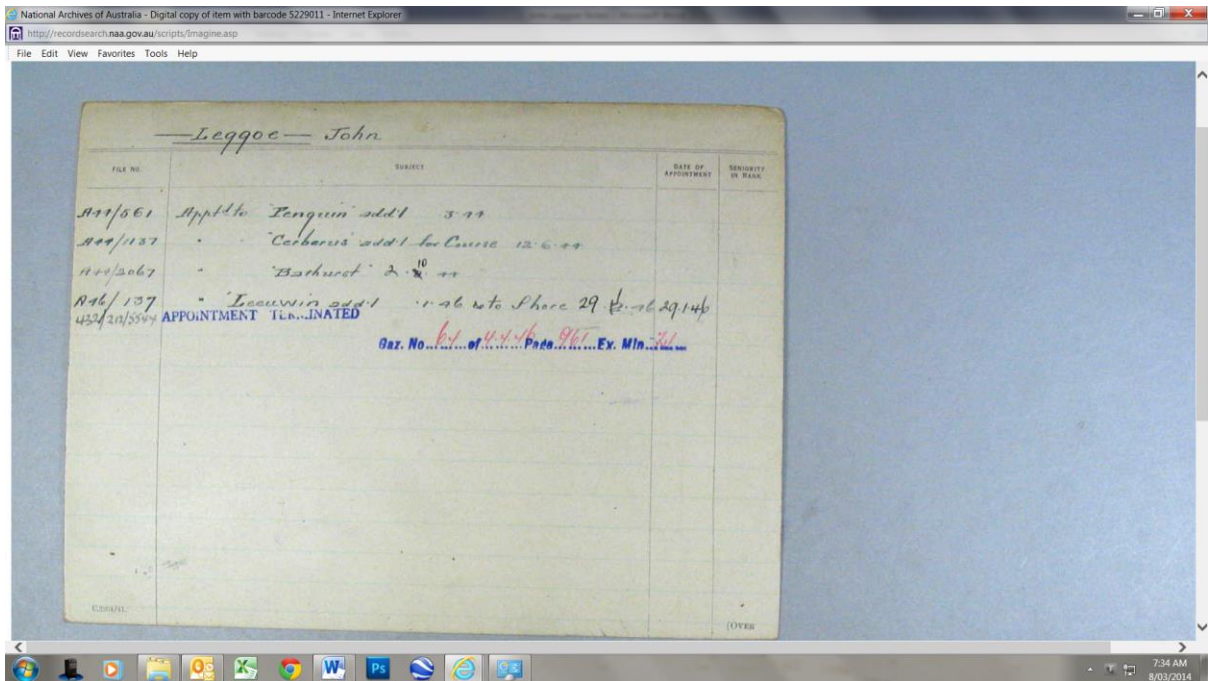 National Archives of Australia - Digital copy of item with barcode 5229011 - Internet Explorer
http://recordsearch.naa.gov.au/scripts/Imagine.asp
File Edit View Favorites Tools Help
Leggoe John
FILE NO. SUBJECT DATE OF APPOINTMENT SENIORITY IN RANK
A44/561 Apptd to "Penguin" add'l 3.44
A44/1137 " " "Cerberus" add'l for Course 12.6.44
A44/2067 " "Bathurst" 2. 10 44
A46/137 " "Leeuwin add'l .1.46 to Shore 29. 46 29.1.46
432/212/5544 APPOINTMENT TERMINATED
Gaz. No. 64 of 4.4.46 Page 961 Ex. Min.
(OVER
7:34 AM
8/03/2014